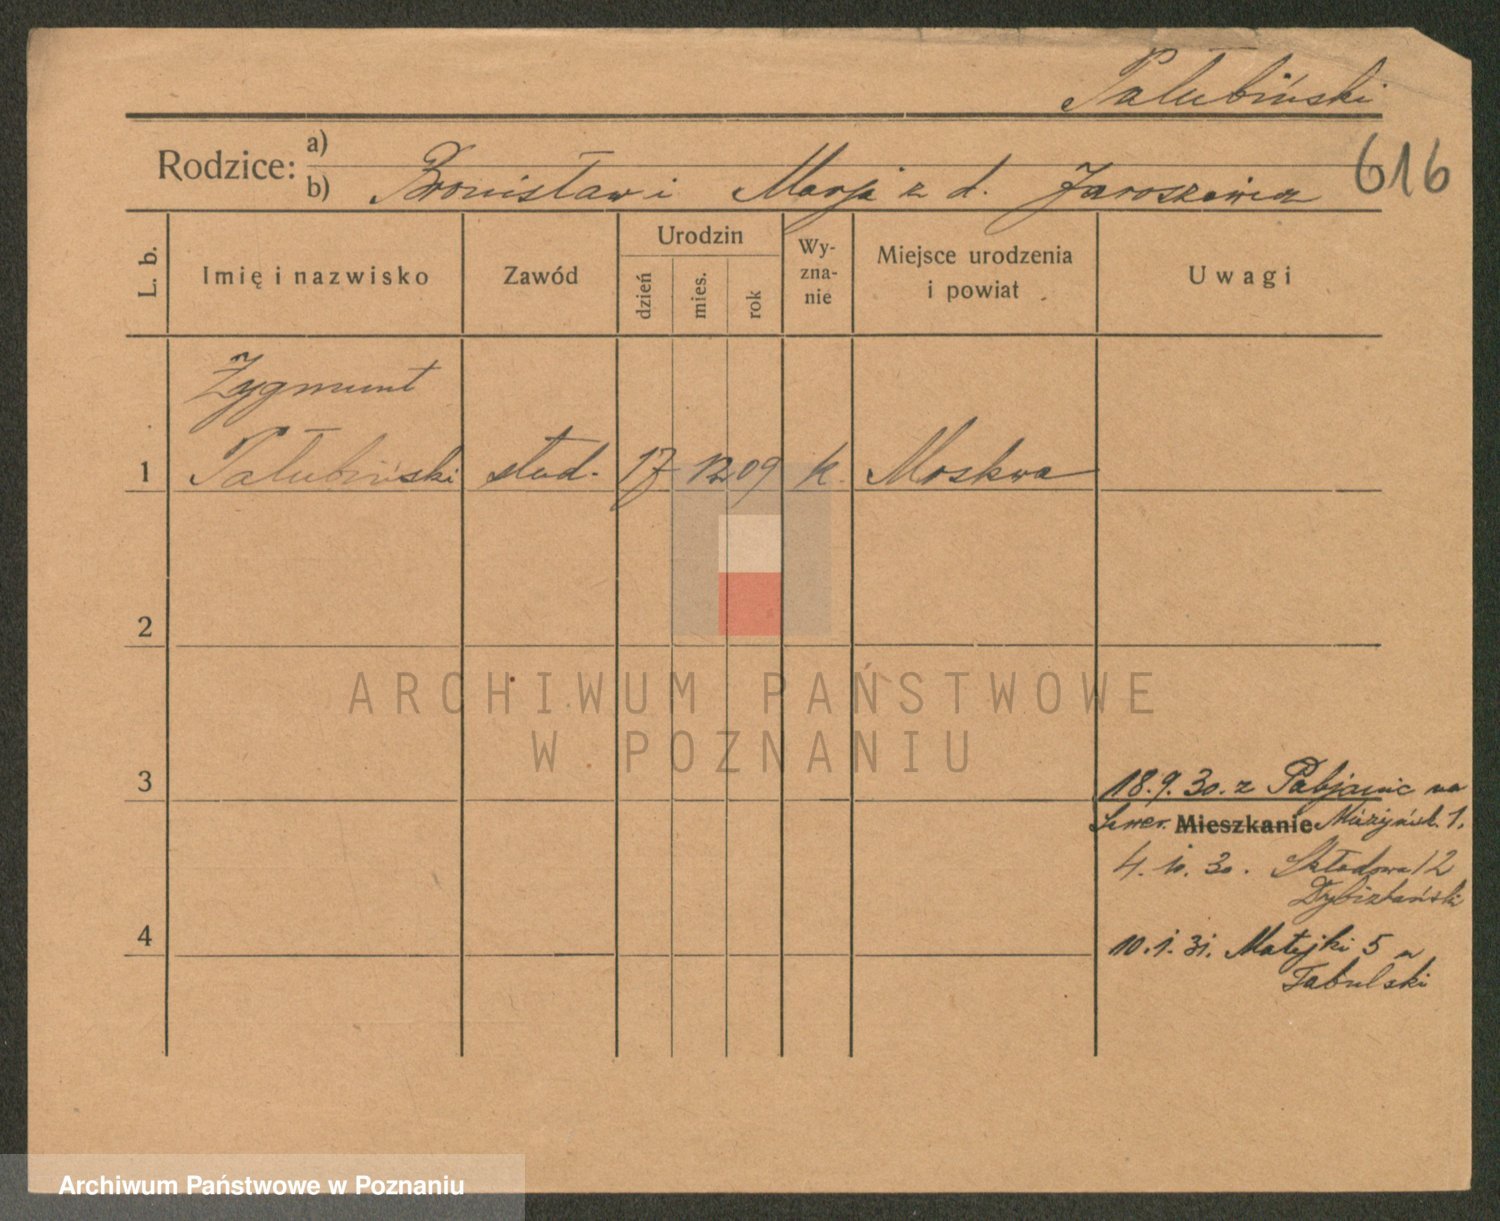 Pałubiński
Rodzice: a)
b) Bronisław i Marja z d. Jaroszewicz
616
L. b.
Imię i nazwisko
Zawód
Urodzin
dzień
mies.
rok
Wy-
zna-
nie
Miejsce urodzenia
i powiat
Uwagi
Zygmunt
1 Pałubiński stud. 17 12 09 k. Moskwa
2
ARCHIWUM PAŃSTWOWE
W POZNANIU
3
18.9.30. z Pabjanic na
Mieszkanie 1.
4.10.30. Składowa 12
4
10.1.31. Matejki 5
Tabulski
Archiwum Państwowe w Poznaniu